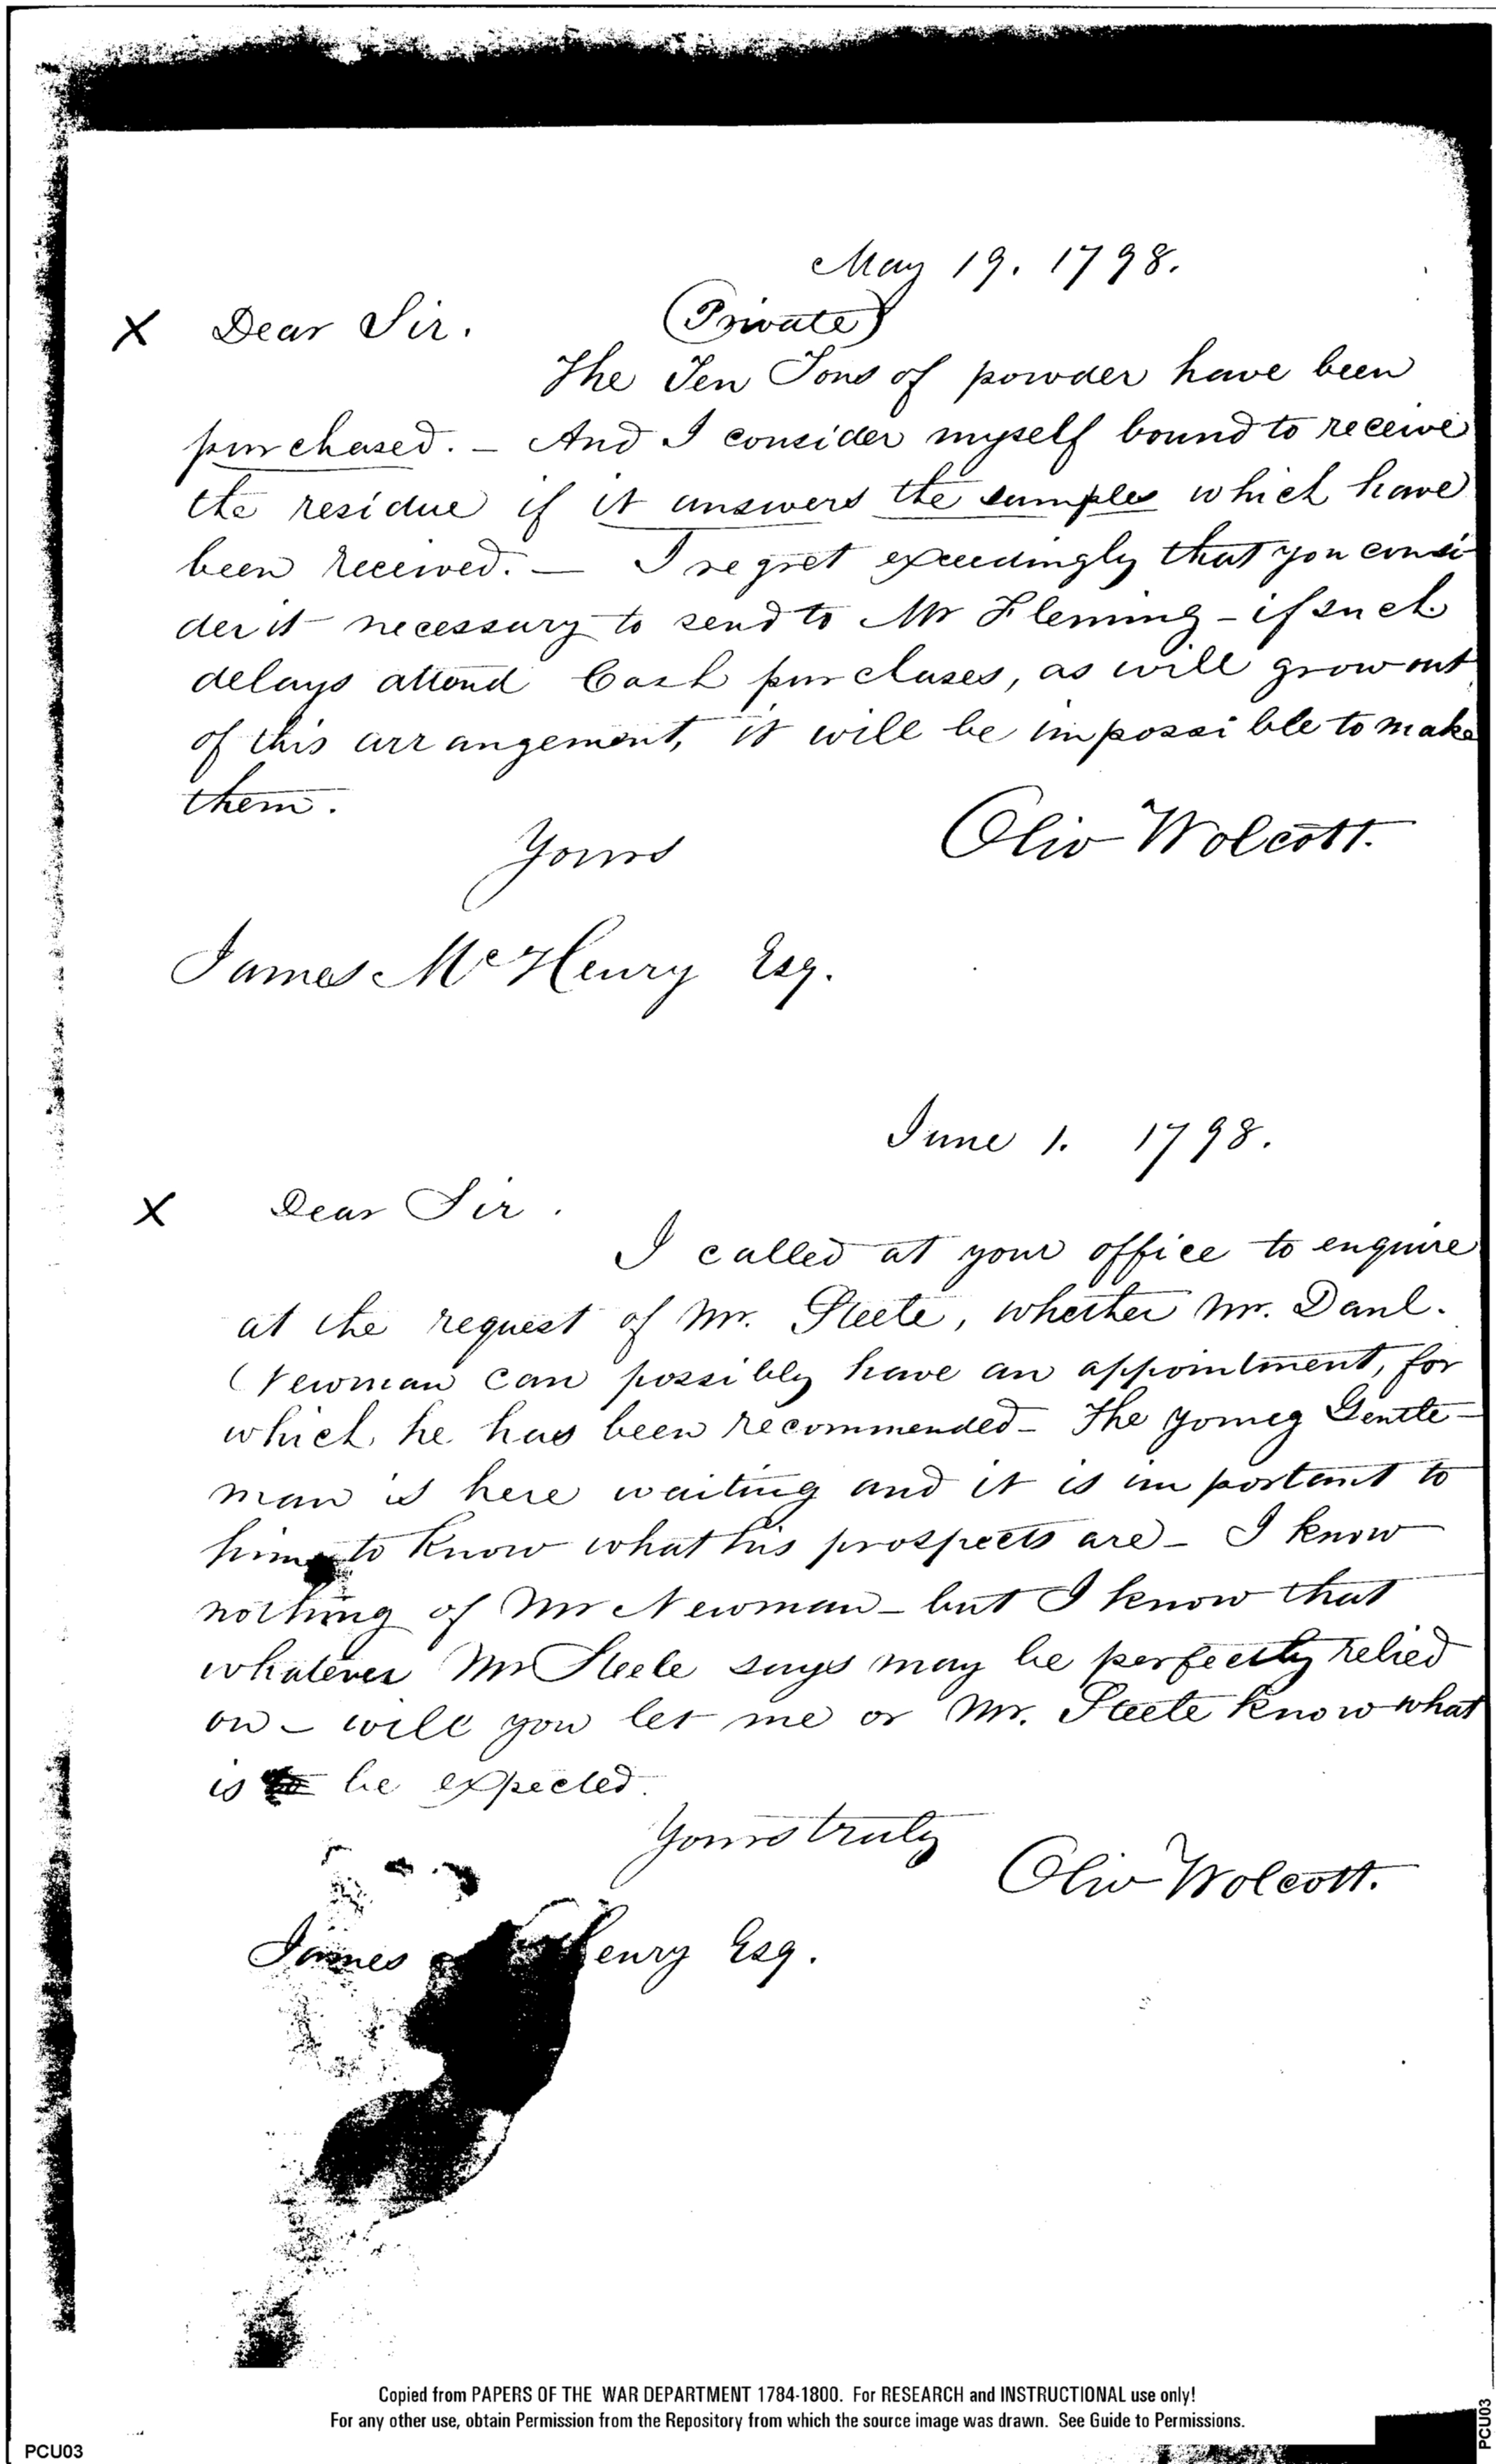 May 19. 1798.
(Private)
X Dear Sir.
The Ten Tons of powder have been
purchased. - And I consider myself bound to receive
the residue if it answers the samples which have
been received. — I regret exceedingly that you consi
der it necessary to send to Mr Fleming - if such
delays attend Cash purchases, as will grow out
of this arrangement, it will be impossible to make
them.
Yours
Oliv Wolcott.
James McHenry Esq.
June 1. 1798.
X Dear Sir.
I called at your office to enquire
at the request of Mr. Steele, whether Mr. Danl.
Newman can possibly have an appointment, for
which he has been recommended - The young Gentle-
man is here waiting and it is important to
him to know what his prospects are - I know
nothing of Mr Newman - but I know that
whatever Mr Steele says may be perfectly relied
on - will you let me or Mr. Steele know what
is to be expected.
Yours truly
Oliv Wolcott.
James Henry Esq.
Copied from PAPERS OF THE WAR DEPARTMENT 1784-1800. For RESEARCH and INSTRUCTIONAL use only!
For any other use, obtain Permission from the Repository from which the source image was drawn. See Guide to Permissions.
PCU03
PCU03